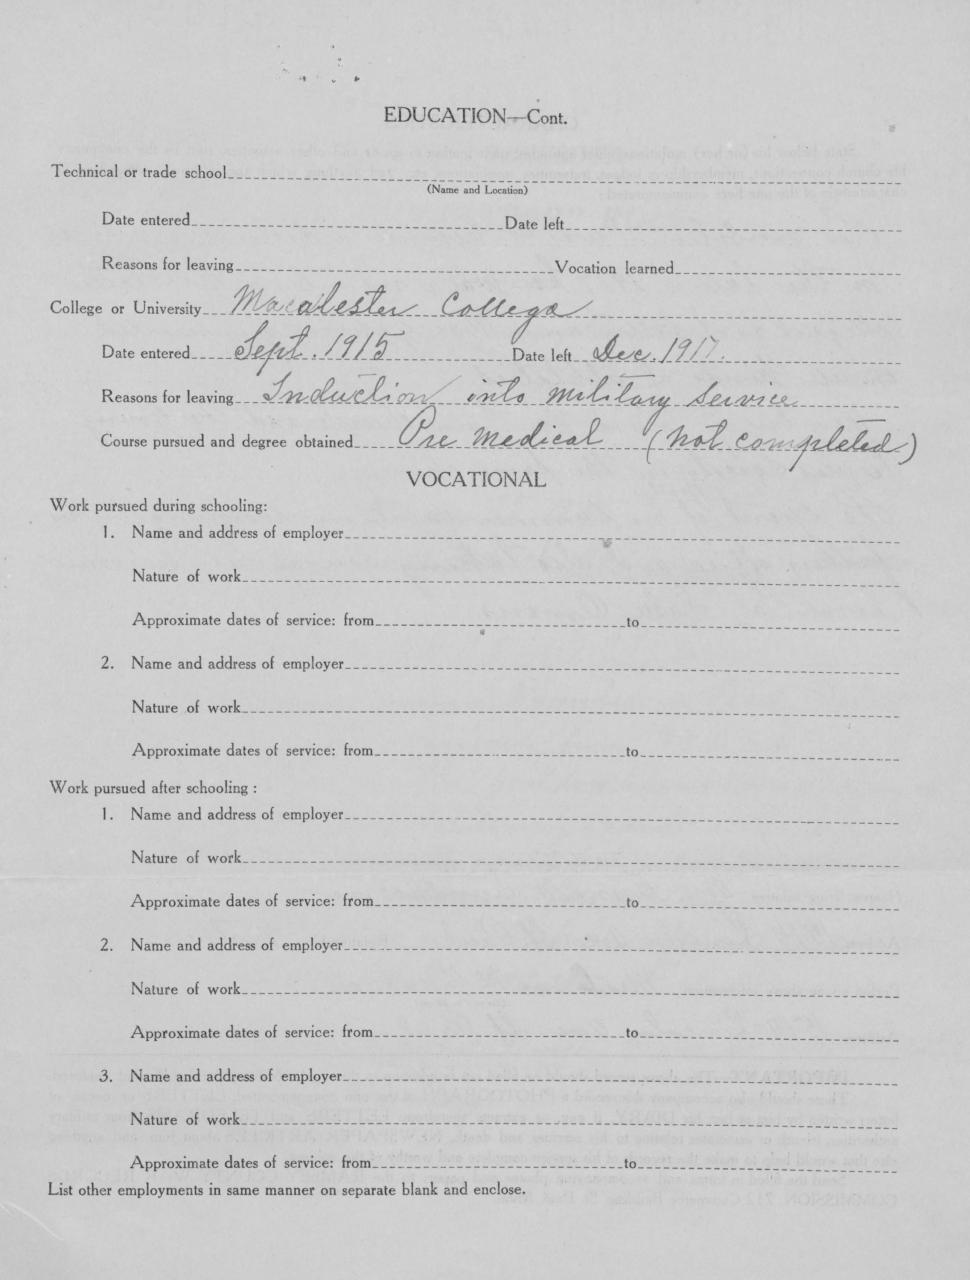 EDUCATION—Cont.
Technical or trade school
(Name and Location)
Date entered Date left
Reasons for leaving Vocation learned
College or University Macalester College
Date entered Sept. 1915 Date left Dec. 1917.
Reasons for leaving Induction into military service
Course pursued and degree obtained Pre medical (not completed)
VOCATIONAL
Work pursued during schooling:
1. Name and address of employer
Nature of work
Approximate dates of service: from to
2. Name and address of employer
Nature of work
Approximate dates of service: from to
Work pursued after schooling :
1. Name and address of employer
Nature of work
Approximate dates of service: from to
2. Name and address of employer
Nature of work
Approximate dates of service: from to
3. Name and address of employer
Nature of work
Approximate dates of service: from to
List other employments in same manner on separate blank and enclose.